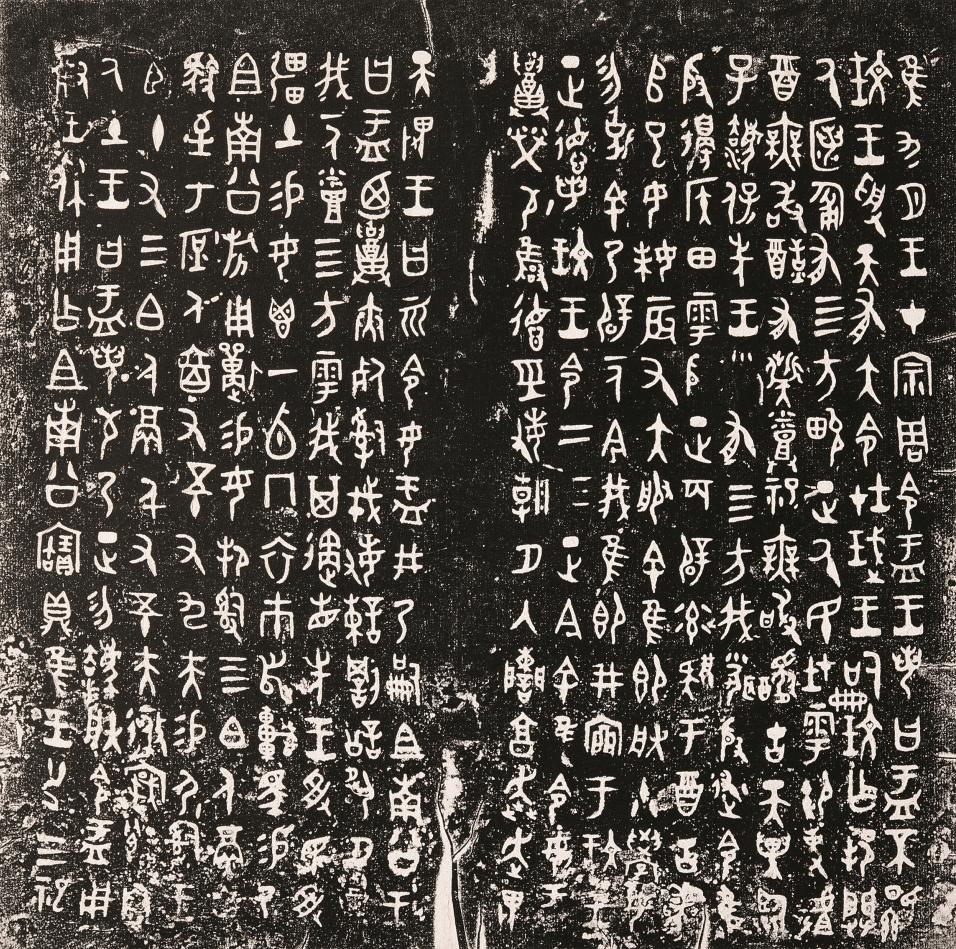 隹九月王才宗周令盂王若曰盂不顯
玟王受天有大令在珷王嗣玟乍邦闢
厥匿匍有四方畯正厥民在雩御事𠭯
酉無敢酖有髭烝祀無敢醻古天異臨
子灋保先王□有四方我聞殷述令隹
殷邊侯田雩殷正百辟率肄于酉古喪
𠂤已女妹辰又大服余隹即朕小學女
勿剋余乃辟一人今我隹即井㐭于玟王
正德若玟王令二三正今余隹令女盂
召榮敬雍德巠敏朝夕入讕享奔走畏
天畏王曰𠀠令女盂井乃嗣且南公王
曰盂乃召夾死司戎敏諫罰訟夙夕召
我一人烝四方雩我其遹省先王受民受
彊土易女鬯一卣冂衣巿舄車馬易乃
且南公旂用遷易女邦司四白人鬲自
馭至于庶人六百又五十又九夫易尸司王
臣十又三白人鬲千又五十夫𠅤□遷自
厥土王曰盂若敬乃正勿灋朕令盂用
對王休用乍且南公寶鼎隹王廿又三祀